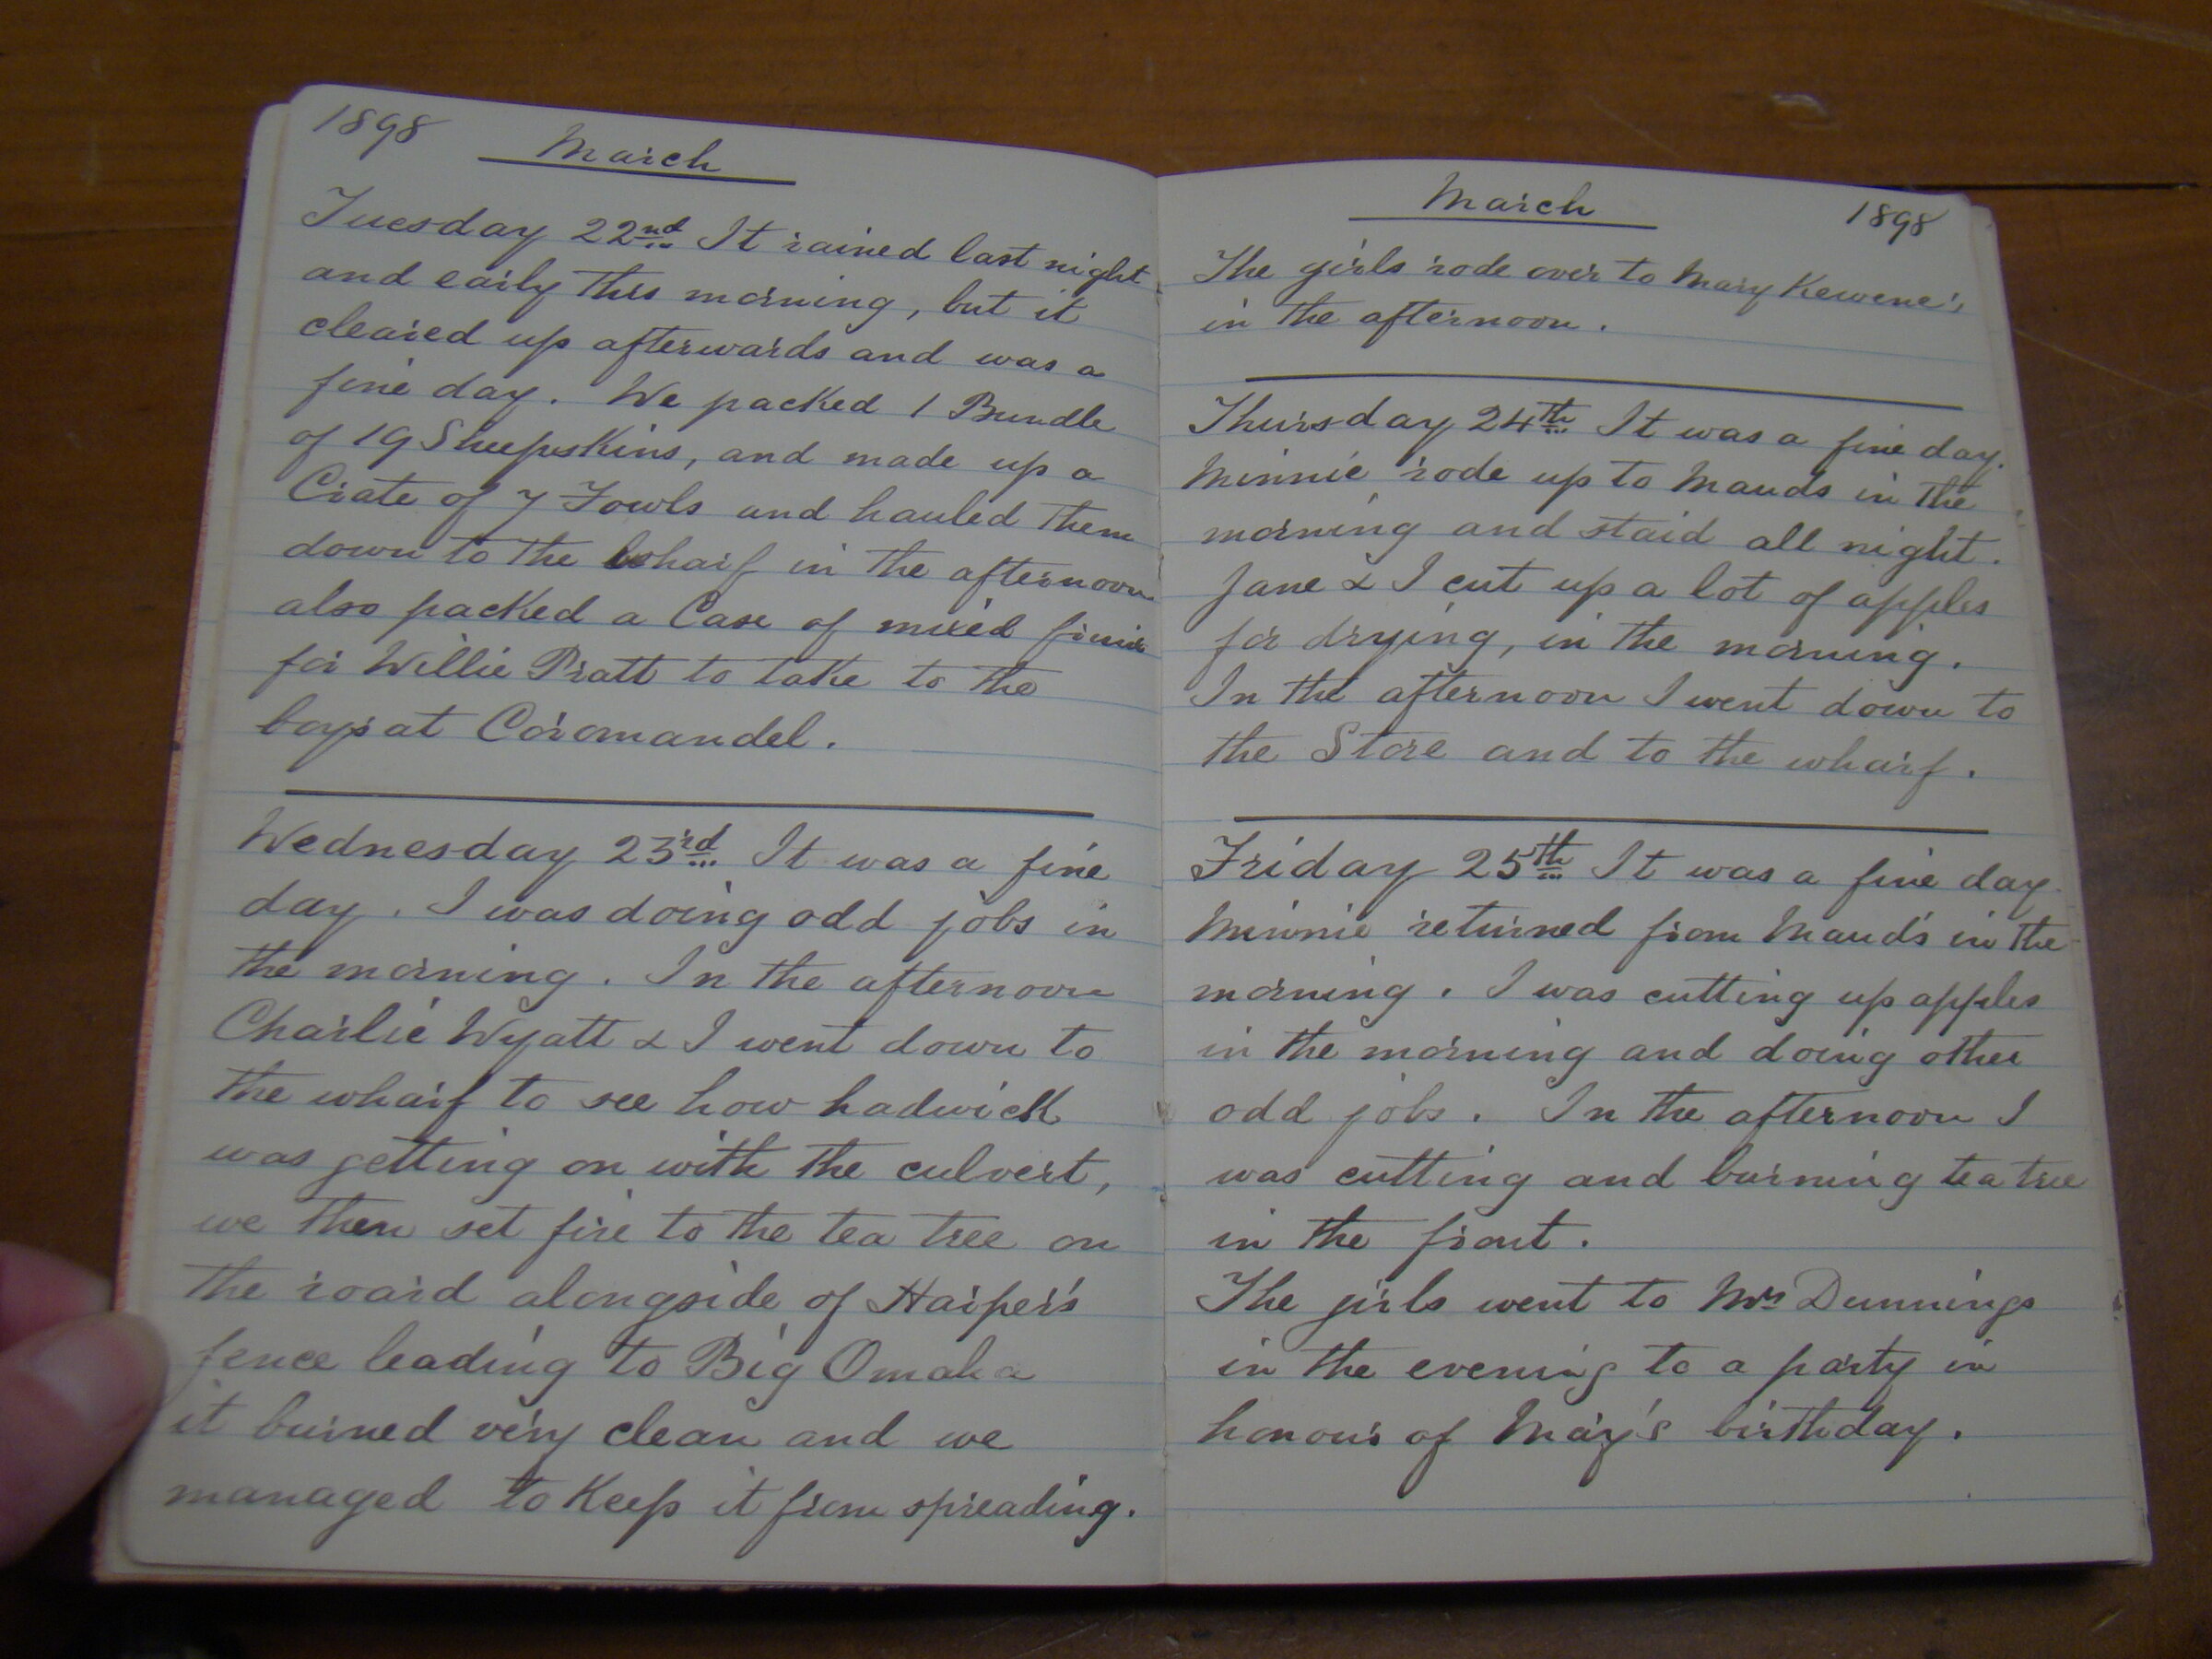 1898
March
Tuesday 22nd It rained last night
and early this morning, but it
cleared up afterwards and was a
fine day. We packed 1 Bundle
of 19 Sheepskins, and made up a
Crate of 7 Fowls and hauled them
down to the wharf in the afternoon
also packed a Case of mixed
for Willie Pratt to take to the
boys at Coromandel.
Wednesday 23rd It was a fine
day. I was doing odd jobs in
the morning. In the afternoon
Charlie Wyatt & I went down to
the wharf to see how hadwick
was getting on with the culvert,
we then set fire to the tea tree on
the roard alongside of Harper's
fence leading to Big Omaha
it burned very clean and we
managed to Keep it from spreading.
March
1898
The girls rode over to Mary Kewene's
in the afternoon.
Thursday 24th It was a fine day.
Minnie rode up to Mauds in the
morning and staid all night.
Jane & I cut up a lot of apples
for drying, in the morning.
In the afternoon I went down to
the Store and to the wharf.
Friday 25th It was a fine day.
Minnie returned from Maud's in the
morning. I was cutting up apples
in the morning and doing other
odd jobs. In the afternoon I
was cutting and burning tea tree
in the front.
The girls went to Mrs Dunnings
in the evening to a party in
honour of May's birthday.